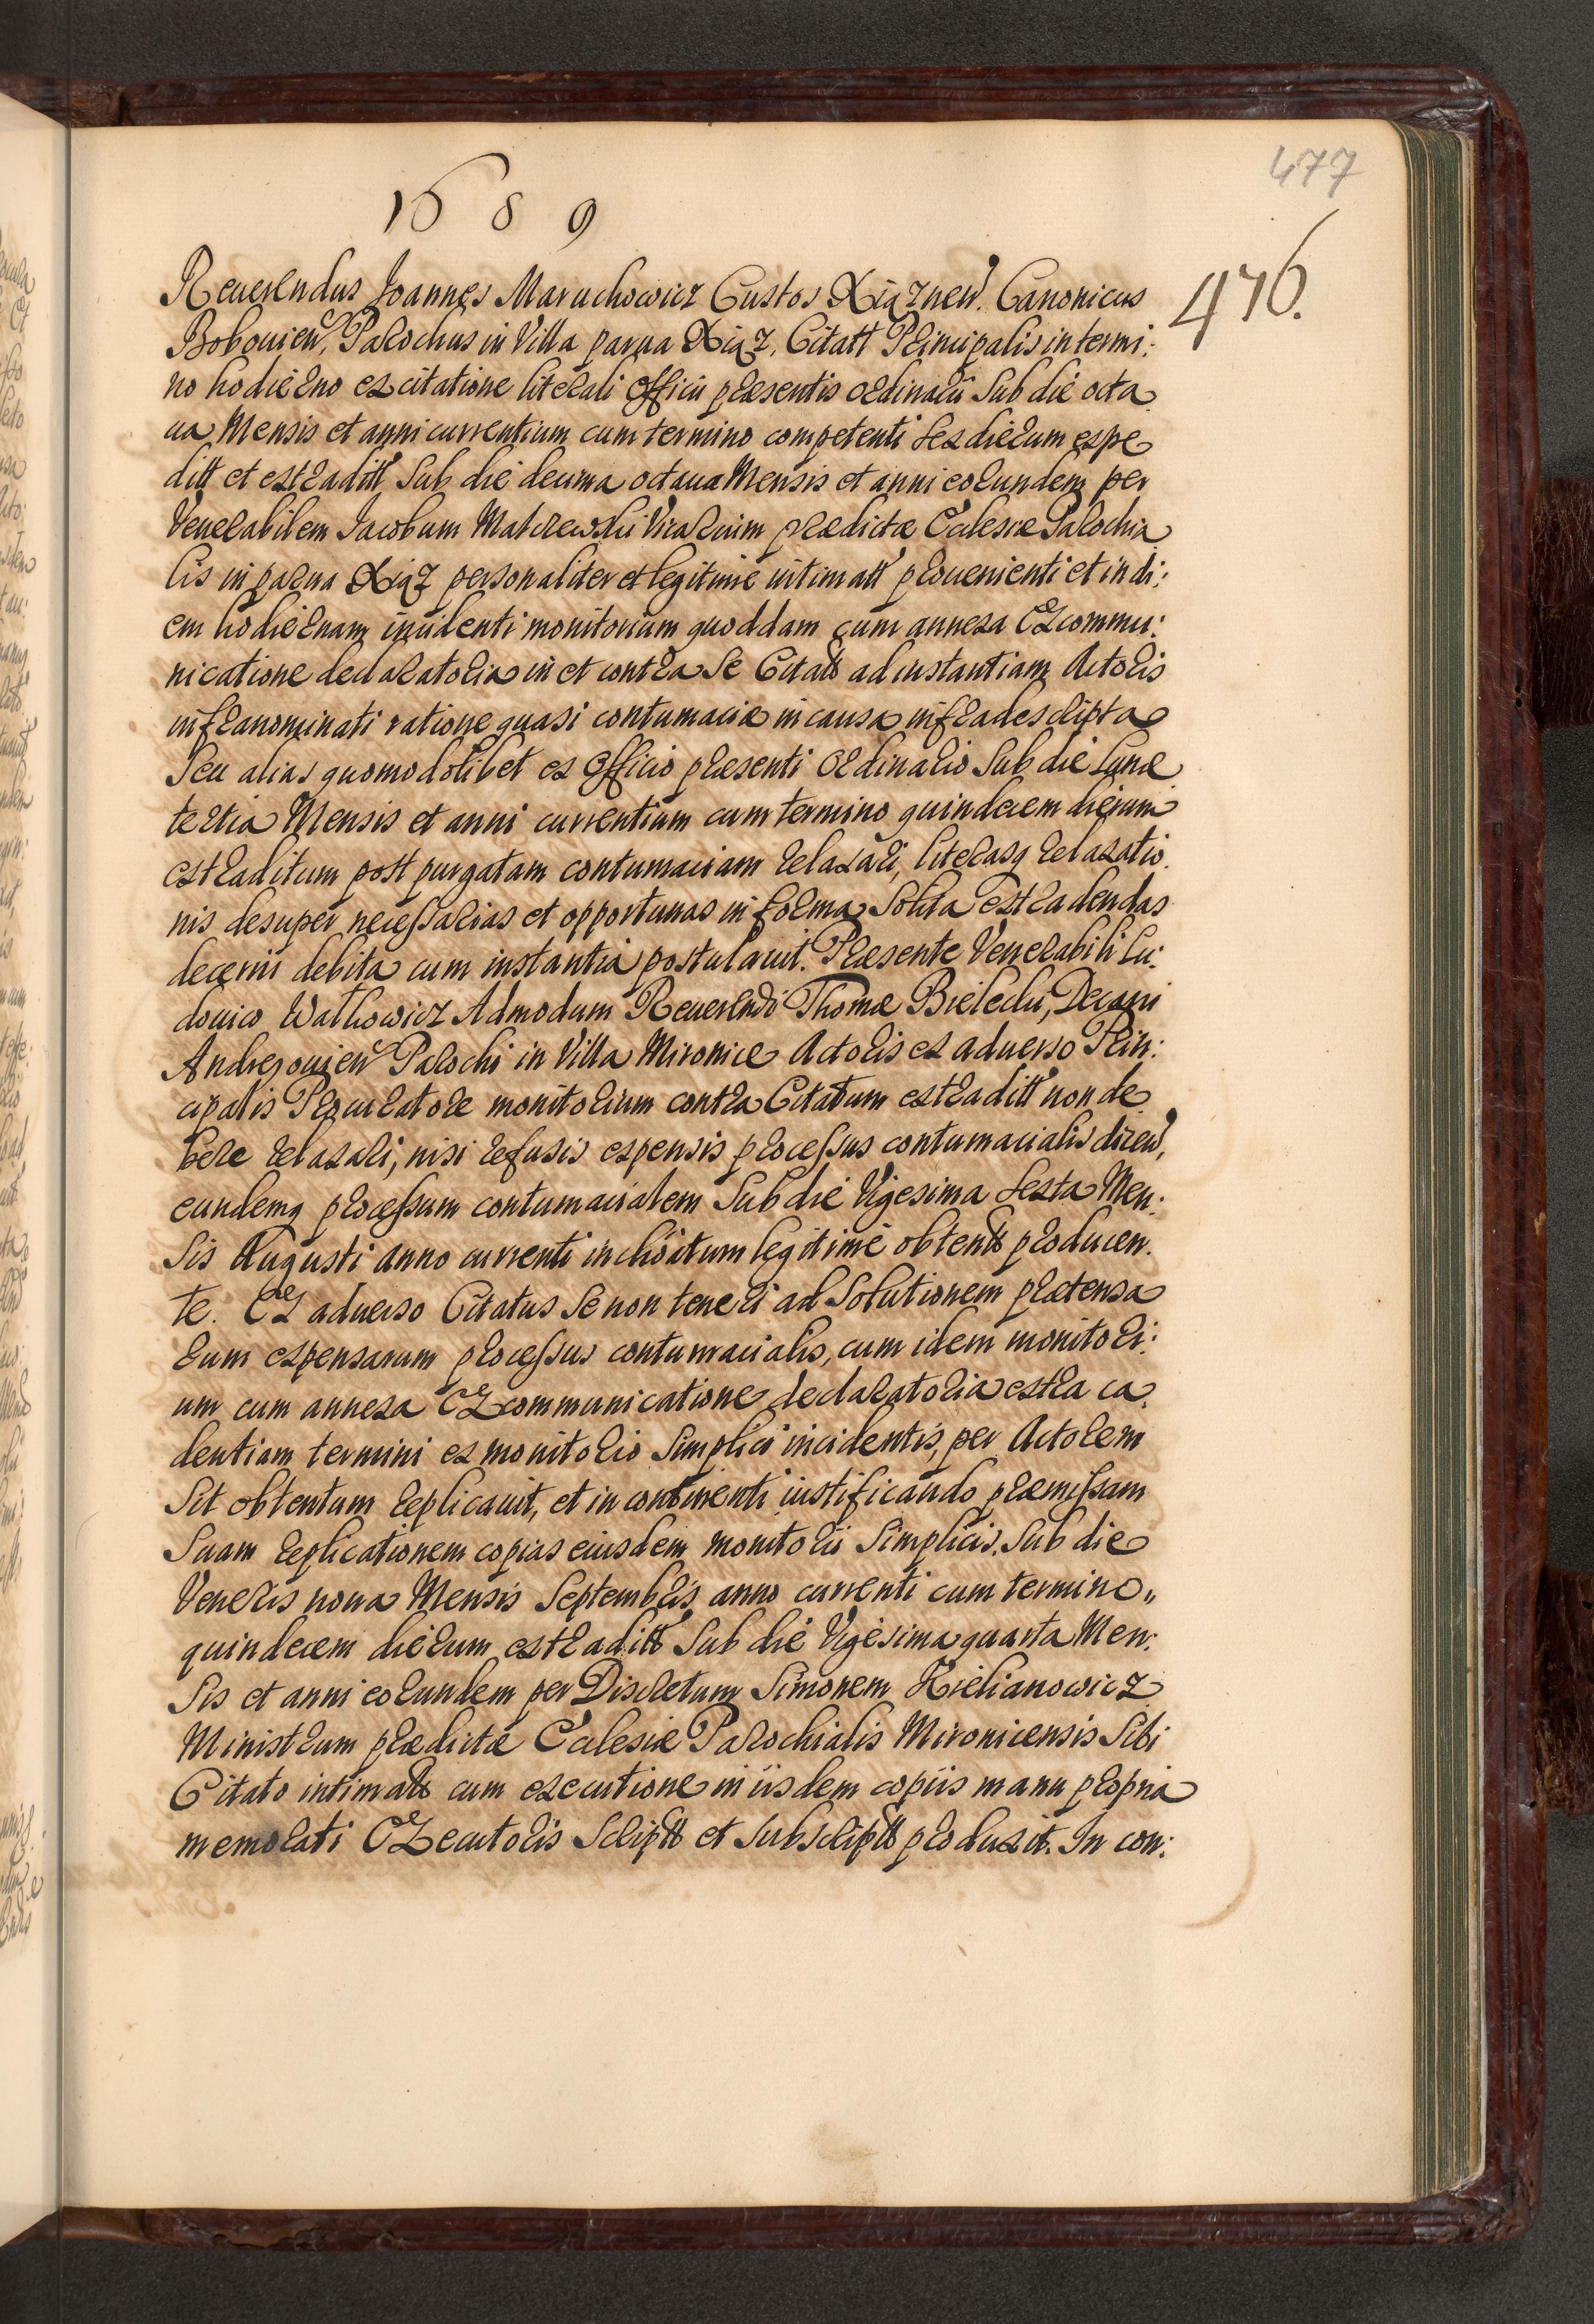 477
1689
476.
Reuerendus Joannes Maruchowicz Custos Xiąznen. Canonicus
Bobouien. Parochus in Villa parua Xiąz, Citatt Principalis in termi:
no hodierno ex citatione literali officii præsentis ordinarii Sub die octa
ua Mensis et anni currentium cum termino competenti sex dierum expe
ditt et extraditt Sub die decima octaua Mensis et anni eorundem per
Venerabilem Jacobum Malczewski Vicarium prædictæ Ecclesiæ Parochia
lis in parua Xiąz personaliter et legitime intimatt prouenienti et in di:
em hodiernam incidenti monitorium quoddam cum annexa Excommu:
nicatione declaratoria in et contra Se Citatt ad instantiam Actoris
infranominati ratione quasi contumaciæ in causa infradescripta
Seu alias quomodolibet ex Officio præsenti Ordinario Sub die Lunæ
tertia Mensis et anni currentium cum termino quindecem dierum
extraditum post purgatam contumaciam relaxari, literasq relaxatio
nis desuper necessarias et opportunas in forma Solita extradendas
decerni debita cum instantia postulauit. Præsente Venerabili Lu:
douico Watkowicz Admodum Reuerendi Thomæ Bielecki, Decani
Andreouien Parochi in Villa Mironice Actoris ex aduerso Prin:
cipalis Procuratore monitorium contra Citatum extraditt non de
bere relaxari, nisi refusis expensis processus contumacialis dicen,
eundemq processum contumacialem Sub die Vigesima Sexta Men:
sis Augusti anno currenti inchoitum legitime obtentt producen
te. Ex aduerso Citatus Se non teneri ad Solutionem prætensa
rum expensarum processus contumacialis, cum idem monitori:
um cum annexa Excommunicatione declaratoria extra ca
dentiam termini ex monitorio Simplici incidentis, per Actorem
Sit obtentum replicauit, et in continenti iustificando præmissam
Suam replicationem copias eiusdem monitorii Simplicis. Sub die
Veneris nona Mensis Septembris anno currenti cum termino
quindecem dierum extraditt Sub die Vigesima quarta Men:
sis et anni eorundem per Discretum Simonem Kielianowicz
Ministrum prædictæ Ecclesiæ Parochialis Mironicensis Sibi
Citato intimatt cum executione in iisdem copiis manu propria
memorati Executoris Scriptt et Subscriptt produxit. In con: